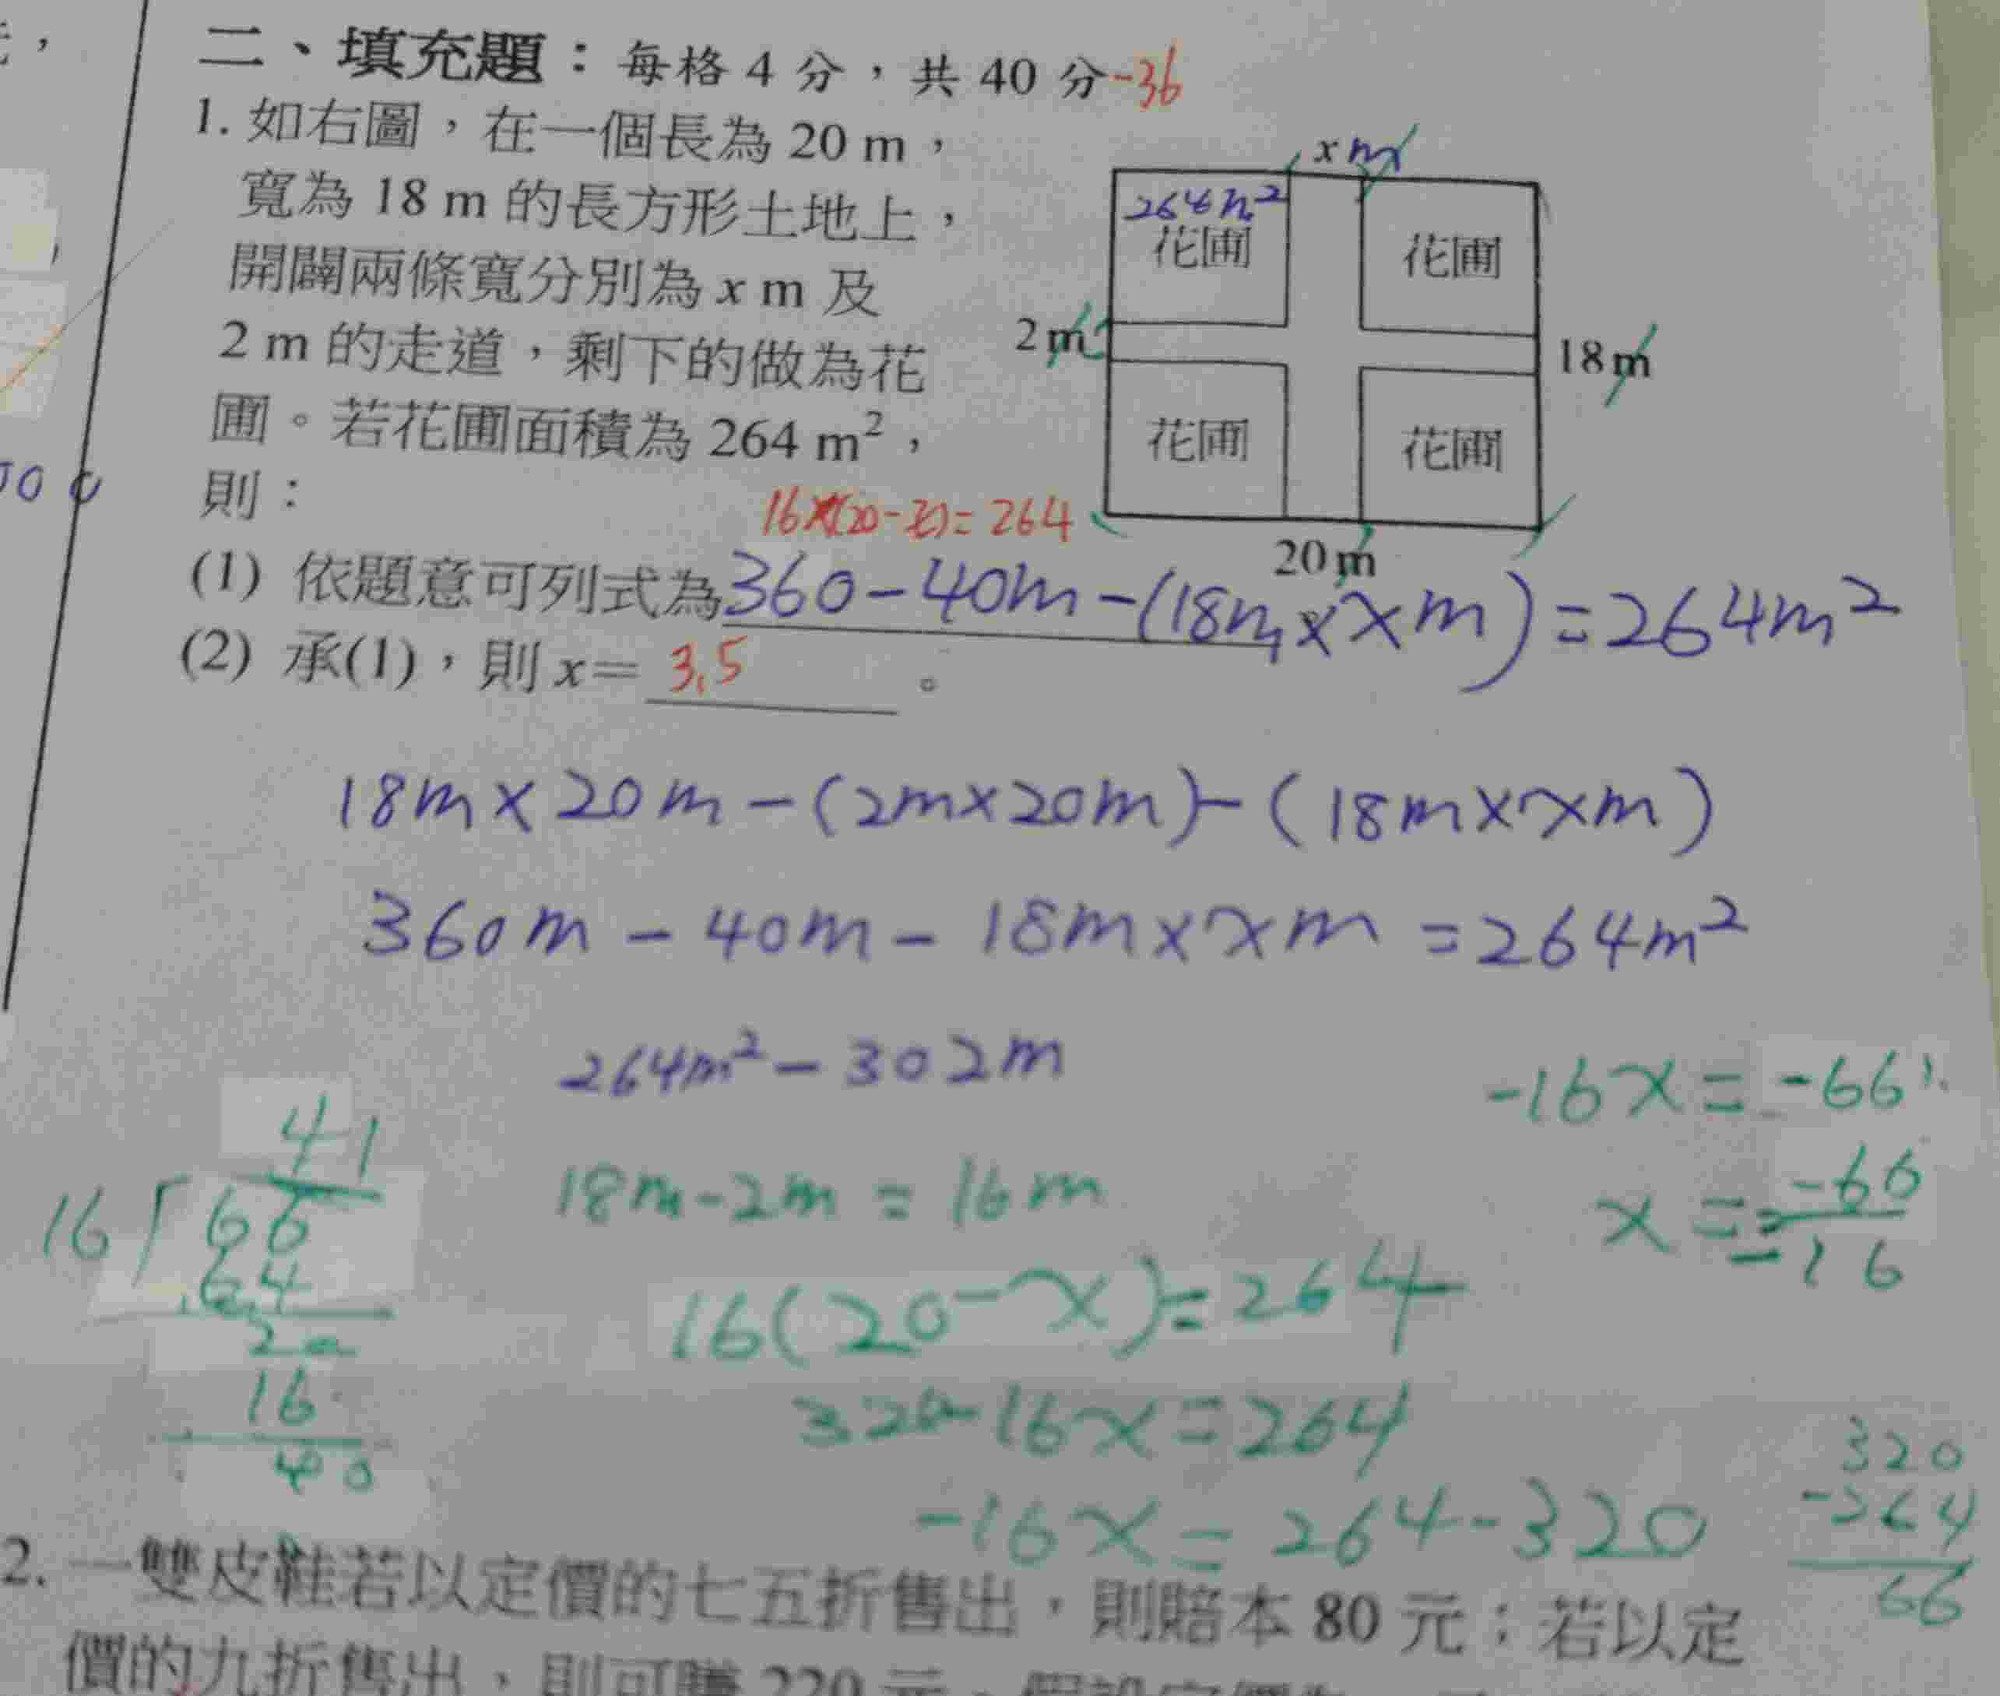 二、填充題：每格 4 分，共 40 分 -36
1. 如右圖，在一個長為 20 m，
寬為 18 m 的長方形土地上，
開闢兩條寬分別為 x m 及
2 m 的走道，剩下的做為花
圃。若花圃面積為 264 m²，
則：
x m
264m²
花圃
花圃
2 m
18 m
花圃
花圃
20 m
(1) 依題意可列式為 360-40m-(18m×xm)=264m²
(2) 承(1)，則 x= 3.5 。
18m×20m-(2m×20m)-(18m×xm)
360m-40m-18m×xm=264m²
264m²-302m
-16x=-66
x=-66
-16
18m-2m=16m
16(20-x)=264
320-16x=264
-16x=264-320
41
16 66
64
20
16
40
320
-264
66
2. 一雙皮鞋若以定價的七五折售出，則賠本 80 元；若以定
價的九折售出，則可賺 220 元。